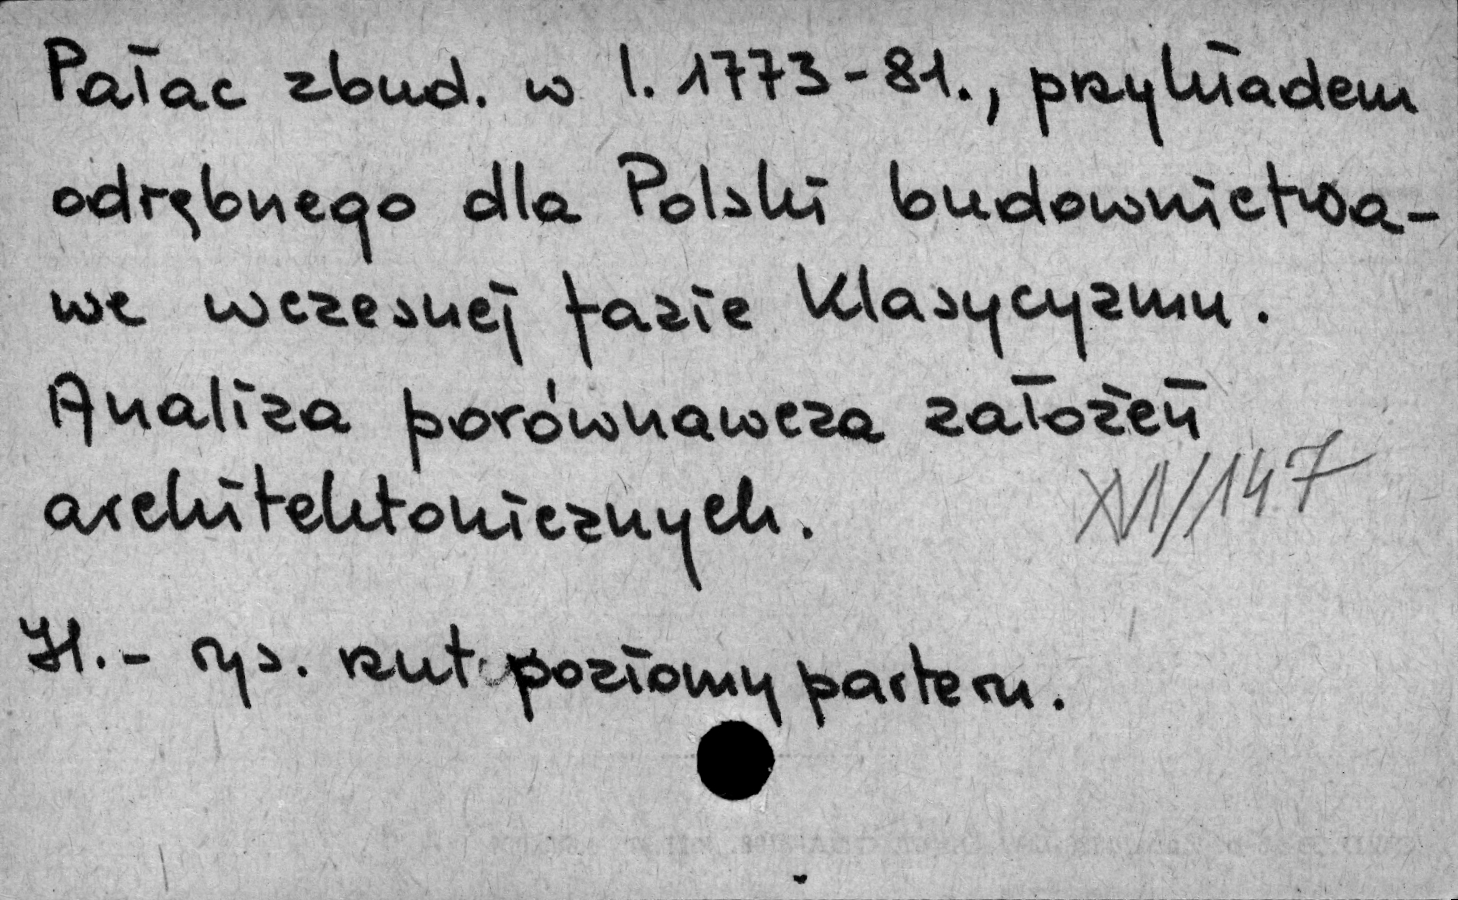 Pałac zbud. w l. 1773-81., przykładem
odrębnego dla Polski budownictwa-
we wczesnej fazie klasycyzmu.
Analiza porównawcza założeń
architektonicznych.
XVI/147
Il.- rys. rzut poziomy parteru.